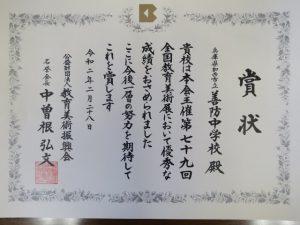 賞状
兵庫県加西市立善防中学校 殿
貴校は本会主催第七十九回
全国教育美術展において優秀な
成績をおさめられました
ここに今後一層の努力を期待して
これを賞します
令和二年二月二十八日
公益財団法人教育美術振興会
名誉会長 中曽根弘文